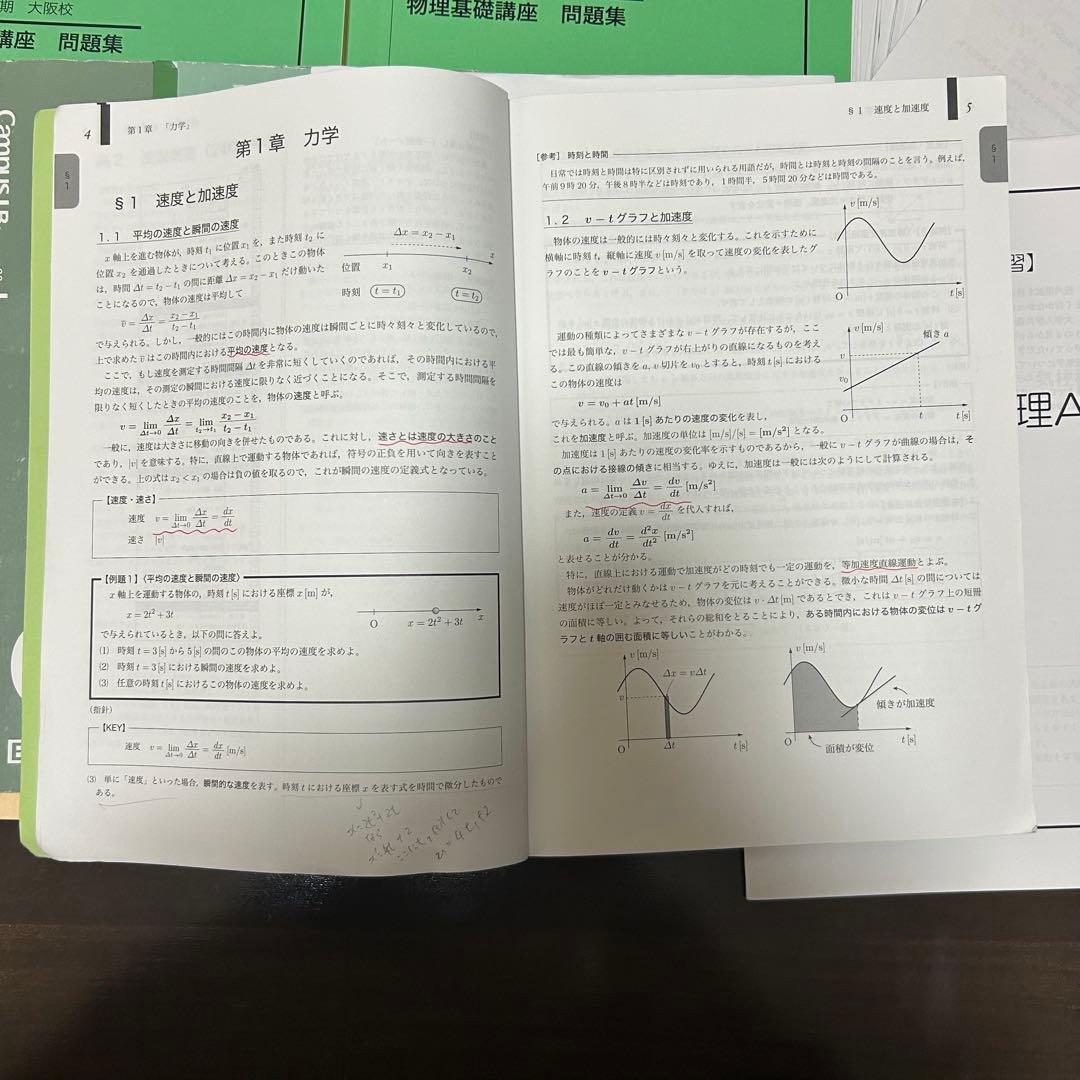 期 大阪校
講座 問題集
物理基礎講座 問題集
Campus
4
第1章 「力学」
§1
第1章 力学
§1 速度と加速度
1.1 平均の速度と瞬間の速度
x 軸上を進む物体が，時刻 t₁ に位置 x₁ を，また時刻 t₂ に
位置 x₂ を通過したときについて考える。このときこの物体
は，時間 Δt = t₂ − t₁ の間に距離 Δx = x₂ − x₁ だけ動いた
ことになるので，物体の速度は平均して
v̄ = Δx/Δt = (x₂ − x₁)/(t₂ − t₁)
Δx = x₂ − x₁
x
位置 x₁ x₂
時刻 (t = t₁) (t = t₂)
で与えられる。しかし，一般的にはこの時間内に物体の速度は瞬間ごとに時々刻々と変化しているので，
上で求めた v̄ はこの時間内における平均の速度となる。
ここで，もし速度を測定する時間間隔 Δt を非常に短くしていくのであれば，その時間内における平
均の速度は，その測定の瞬間における速度に限りなく近づくことになる。そこで，測定する時間間隔を
限りなく短くしたときの平均の速度のことを，物体の速度と呼ぶ。
v = lim Δt→0 Δx/Δt = lim t₂→t₁ (x₂ − x₁)/(t₂ − t₁)
一般に，速度は大きさに移動の向きを併せたものである。これに対し，速さとは速度の大きさのこと
であり，|v| を意味する。特に，直線上で運動する物体であれば，符号の正負を用いて向きを表すこと
ができる。上の式は x₂ < x₁ の場合は負の値を取るので，これが瞬間の速度の定義式となっている。
【速度・速さ】
速度 v = lim Δt→0 Δx/Δt = dx/dt
速さ |v|
【例題1】〈平均の速度と瞬間の速度〉
x 軸上を運動する物体の，時刻 t [s] における座標 x [m] が，
x = 2t² + 3t
O x = 2t² + 3t x
で与えられているとき，以下の問に答えよ。
(1) 時刻 t = 3 [s] から 5 [s] の間のこの物体の平均の速度を求めよ。
(2) 時刻 t = 3 [s] における瞬間の速度を求めよ。
(3) 任意の時刻 t [s] におけるこの物体の速度を求めよ。
(指針)
【KEY】
速度 v = lim Δt→0 Δx/Δt = dx/dt [m/s]
(3) 単に「速度」といった場合，瞬間的な速度を表す。時刻 t における座標 x を表す式を時間で微分したもので
ある。
§1 速度と加速度
5
§1
[参考] 時刻と時間
日常では時刻と時間は特に区別されずに用いられる用語だが，時間とは時刻と時刻の間隔のことを言う。例えば，
午前9時20分，午後8時半などは時刻であり，1時間半，5時間20分などは時間である。
1.2 v − t グラフと加速度
物体の速度は一般的には時々刻々と変化する。これを示すために
横軸に時刻 t，縦軸に速度 v [m/s] を取って速度の変化を表したグ
ラフのことを v − t グラフという。
v [m/s]
O
t [s]
運動の種類によってさまざまな v − t グラフが存在するが，ここ
では最も簡単な，v − t グラフが右上がりの直線になるものを考え
る。この直線の傾きを a, v 切片を v₀ とすると，時刻 t [s] における
この物体の速度は
v = v₀ + at [m/s]
v [m/s]
傾き a
v
v₀
O
t
t [s]
で与えられる。a は 1 [s] あたりの速度の変化を表し，
これを加速度と呼ぶ。加速度の単位は [m/s]/[s] = [m/s²] となる。
加速度は 1 [s] あたりの速度の変化率を示すものであるから，一般に v − t グラフが曲線の場合は，そ
の点における接線の傾きに相当する。ゆえに，加速度は一般には次のようにして計算される。
a = lim Δt→0 Δv/Δt = dv/dt [m/s²]
また，速度の定義 v = dx/dt を代入すれば，
a = dv/dt = d²x/dt² [m/s²]
と表せることが分かる。
特に，直線上における運動で加速度がどの時刻でも一定の運動を，等加速度直線運動とよぶ。
物体がどれだけ動くかは v − t グラフを元に考えることができる。微小な時間 Δt [s] の間については
速度がほぼ一定とみなせるため，物体の変位は v · Δt [m] であるとでき，これは v − t グラフ上の短冊
の面積に等しい。よって，それらの総和をとることにより，ある時間内における物体の変位は v − t グ
ラフと t 軸の囲む面積に等しいことがわかる。
v [m/s]
Δx = vΔt
v
O
Δt
t [s]
v [m/s]
傾きが加速度
O
面積が変位
t [s]
習】
理A